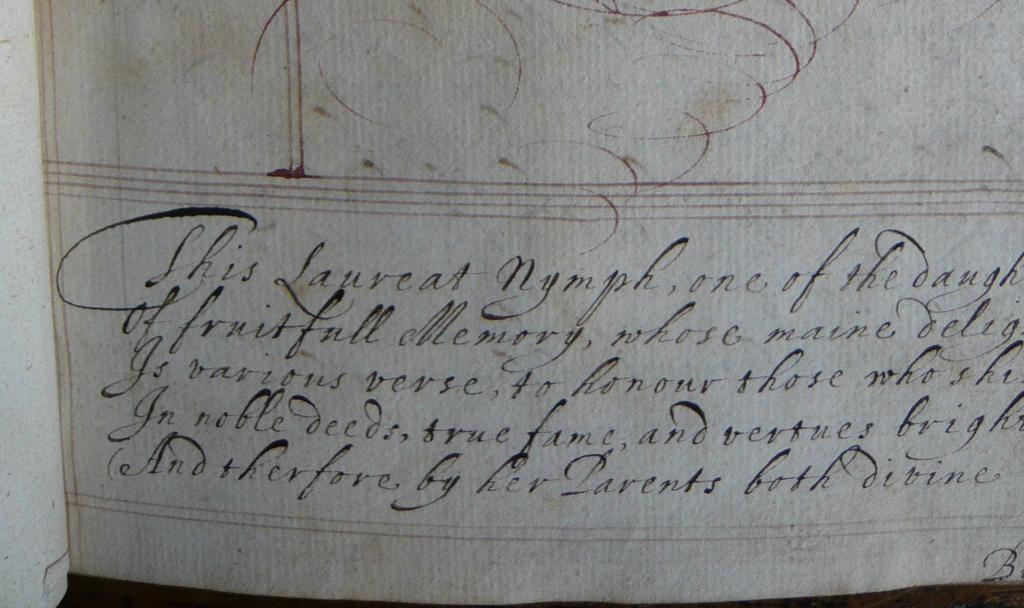 This Laureat Nymph, one of the daugh
Of fruitfull Memory, whose maine delig
Is various verse, to honour those who shi
In noble deeds, true fame, and vertues bright
(And therfore by her Parents both divine
B